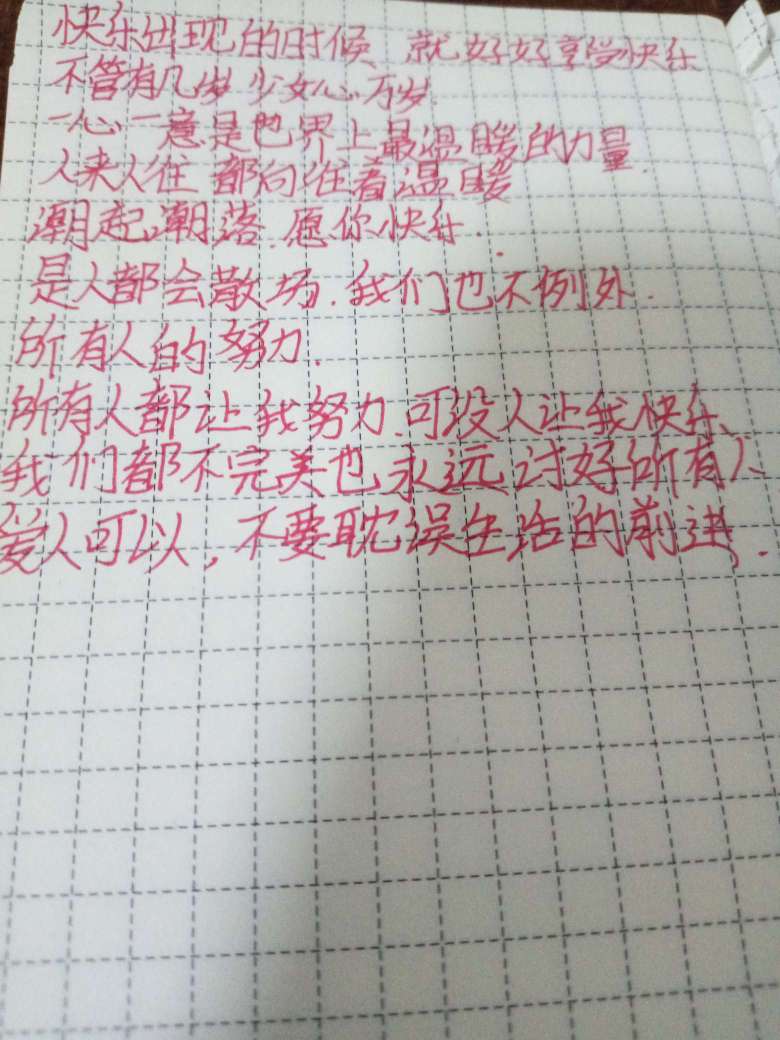 快乐出现的时候、就好好享受快乐
不管有几岁 少女心万岁.
一心一意是世界上最温暖的力量.
人来人往 都向往着温暖
潮起潮落.愿你快乐.
是人都会散场.我们也不例外.
所有人的努力.
所有人都让我努力.可没人让我快乐、
我们都不完美也永远讨好所有人
爱人可以,不要耽误生活的前进,.